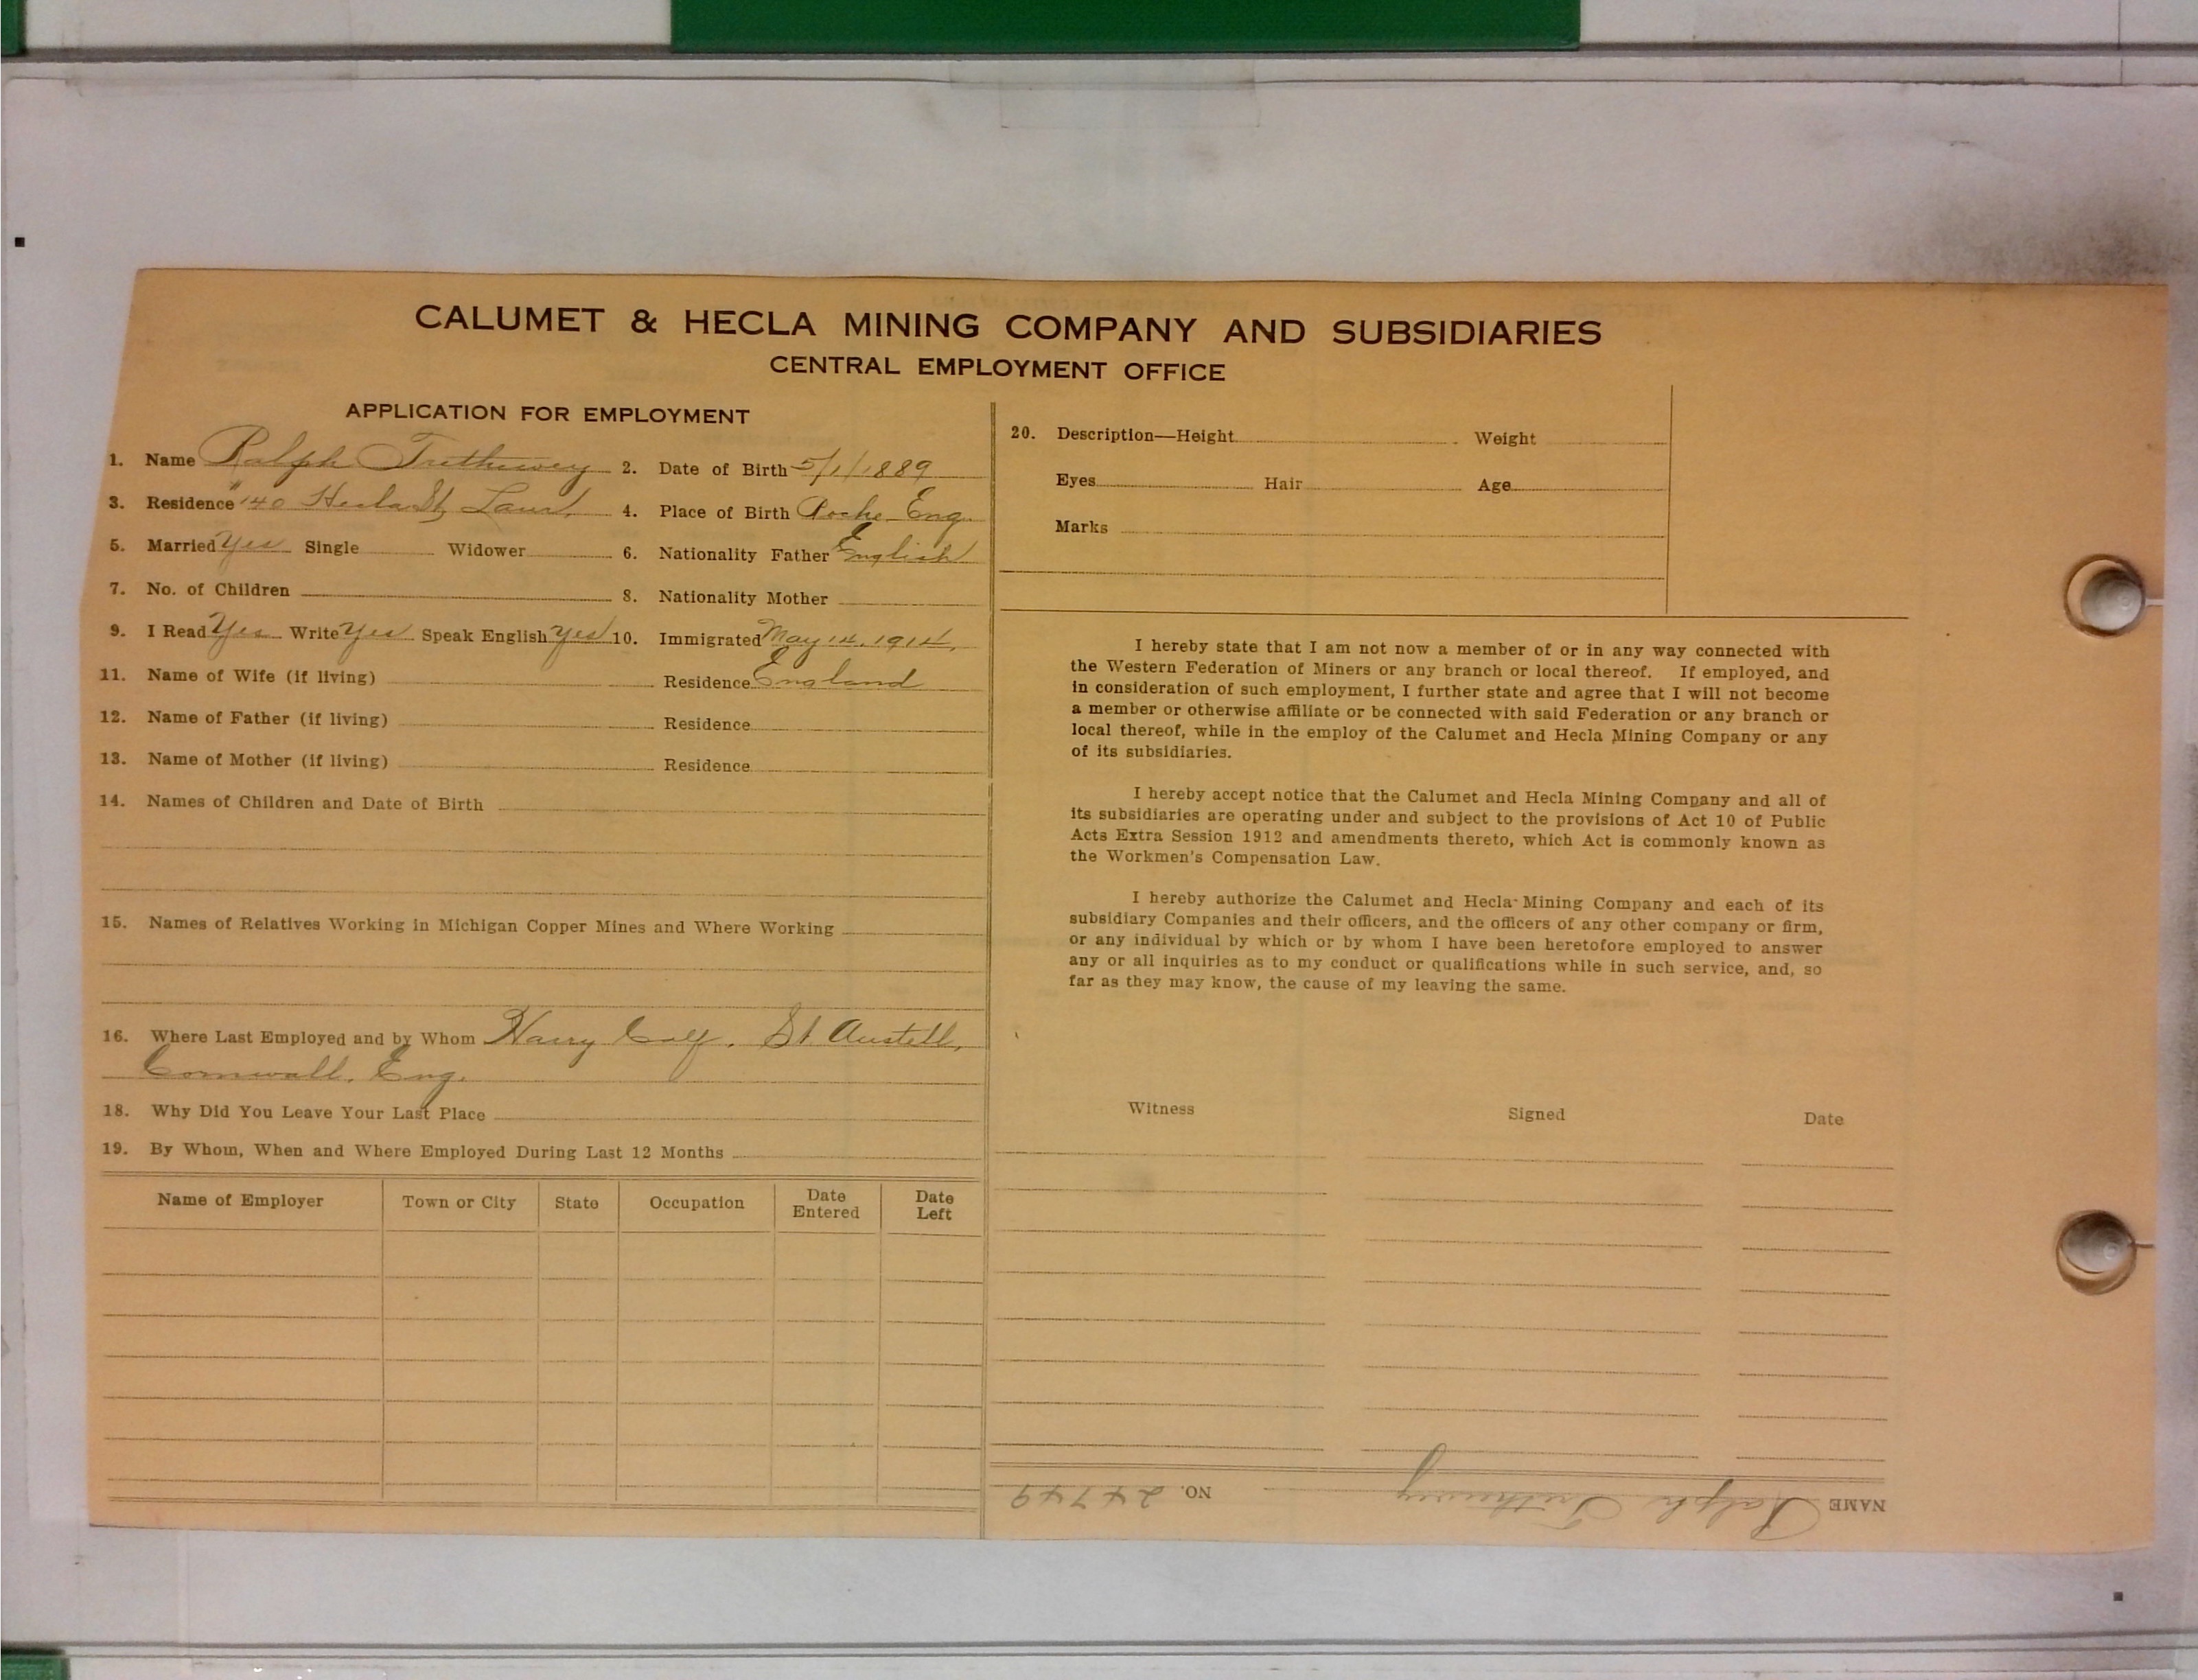 CALUMET & HECLA MINING COMPANY AND SUBSIDIARIES
CENTRAL EMPLOYMENT OFFICE
APPLICATION FOR EMPLOYMENT
1. Name Ralph Trethewey 2. Date of Birth 5/1/1889
3. Residence 140 Hecla St, Laur. 4. Place of Birth Roche Eng.
5. Married Yes Single Widower 6. Nationality Father English
7. No. of Children 8. Nationality Mother
9. I Read Yes Write Yes Speak English Yes 10. Immigrated May 14, 1914.
11. Name of Wife (if living) Residence England
12. Name of Father (if living) Residence
13. Name of Mother (if living) Residence
14. Names of Children and Date of Birth
15. Names of Relatives Working in Michigan Copper Mines and Where Working
16. Where Last Employed and by Whom Harry St Austell,
Cornwall, Eng.
18. Why Did You Leave Your Last Place
19. By Whom, When and Where Employed During Last 12 Months
Name of Employer Town or City State Occupation Date Entered Date Left
20. Description—Height Weight
Eyes Hair Age
Marks
I hereby state that I am not now a member of or in any way connected with
the Western Federation of Miners or any branch or local thereof. If employed, and
in consideration of such employment, I further state and agree that I will not become
a member or otherwise affiliate or be connected with said Federation or any branch or
local thereof, while in the employ of the Calumet and Hecla Mining Company or any
of its subsidiaries.
I hereby accept notice that the Calumet and Hecla Mining Company and all of
its subsidiaries are operating under and subject to the provisions of Act 10 of Public
Acts Extra Session 1912 and amendments thereto, which Act is commonly known as
the Workmen's Compensation Law.
I hereby authorize the Calumet and Hecla Mining Company and each of its
subsidiary Companies and their officers, and the officers of any other company or firm,
or any individual by which or by whom I have been heretofore employed to answer
any or all inquiries as to my conduct or qualifications while in such service, and, so
far as they may know, the cause of my leaving the same.
Witness Signed Date
NAME Ralph Trethewey NO. 24749